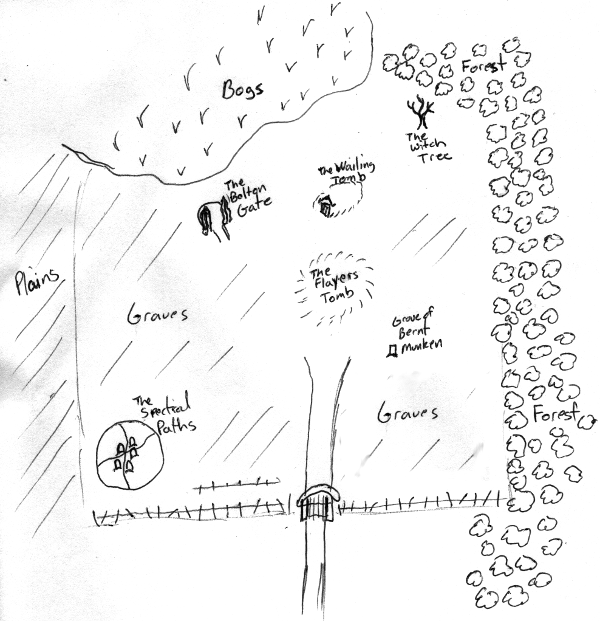 Forest
Bogs
The
Witch
Tree
The Wailing
Tomb
The
Bolton
Gate
Plains
The
Flayers
Tomb
Graves
Grave of
Bernt
Munken
The
Spectral
Paths
Graves
Forest